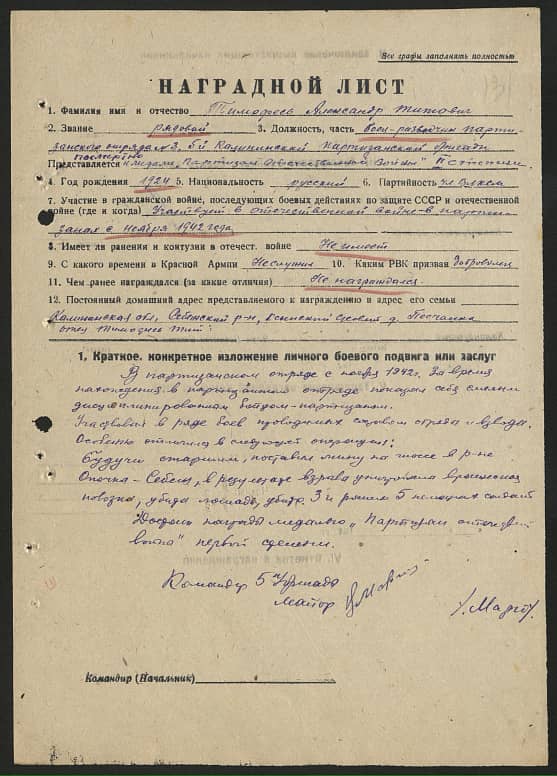 Все графы заполнять полностью
НАГРАДНОЙ ЛИСТ
1. Фамилия имя и отчество Тимофеев Александр Титович
2. Звание рядовой 3. Должность, часть боец-разведчик парти-
занского отряда 3, 5й Калининской Партизанской бригады
посмертно
Представляется к медали „Партизан Отечественной Войны" II степени
4. Год рождения 1924 5. Национальность русский 6. Партийность чл. Влксм
7. Участие в гражданской войне, последующих боевых действиях по защите СССР и отечественной
войне (где и когда) Участвует в отечественной войне в партизанах
с ноября 1942 года
8. Имеет ли ранения и контузии в отечест. войне Не имеет
9. С какого времени в Красной Армии Не служил 10. Каким РВК призван добровольно
11. Чем ранее награждался (за какие отличия) Не награждался
12. Постоянный домашний адрес представляемого к награждению и адрес его семьи
Калининская обл, Себежский р-н, совет д. Песчанка
отец Тимофеев Тит
1. Краткое, конкретное изложение личного боевого подвига или заслуг
В партизанском отряде с ноября 1942г. За время
нахождения в партизанском отряде показал себя смелым
дисциплинированным бойцом-партизаном.
Участвовал в ряде боев проводимых составом отряда и взвода.
Особенно отличился в следующей операции:
Будучи старшим, поставил мину на шоссе в р-не
Опочка - Себеж, в результате взрыва уничтожена вражеская
повозка, убита лошадь, убито 3 и ранено 5 немецких солдат
Достоин награды медалью „Партизан отечествен
войны" первой степени.
Командир 5 бригады
майор
Командир (Начальник)